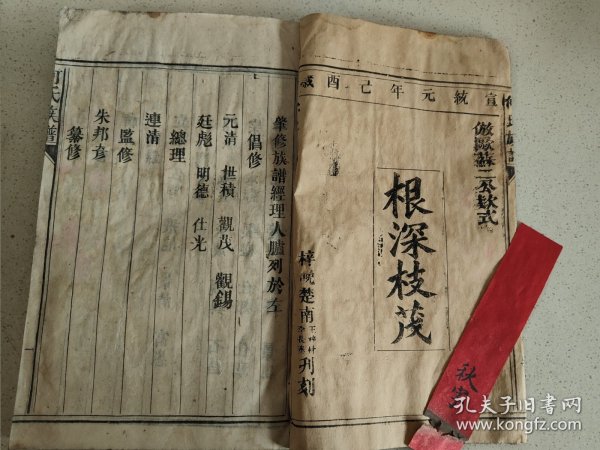 宣統元年己酉歲
倣歐蘇二公欵式
根深枝茂
梓
楚南
刊刻
肇修族譜經理人臚列於左
倡修
元清 世積 觀茂 觀錫
廷彪 明德 仕光
總理
連清
監修
朱邦彥
纂修
氏族譜
孔夫子旧书网